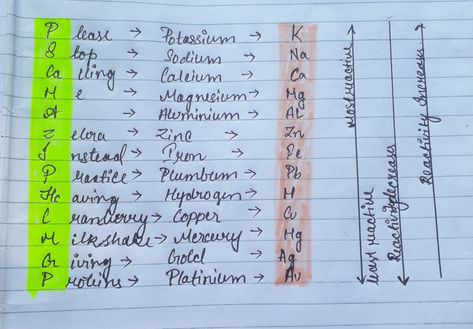 Please → Potassium → K
Stop → Sodium → Na
Calling → Calcium → Ca
Me → Magnesium → Mg
A → Aluminium → Al
Zebra → Zinc → Zn
Instead → Iron → Fe
Practice → Plumbum → Pb
Having → Hydrogen → H
Cranberry → Copper → Cu
Milkshake → Mercury → Hg
Giving → Gold → Ag
Proteins → Platinium → Au
Most reactive
least reactive
Reactivity decreases
Reactivity Increases